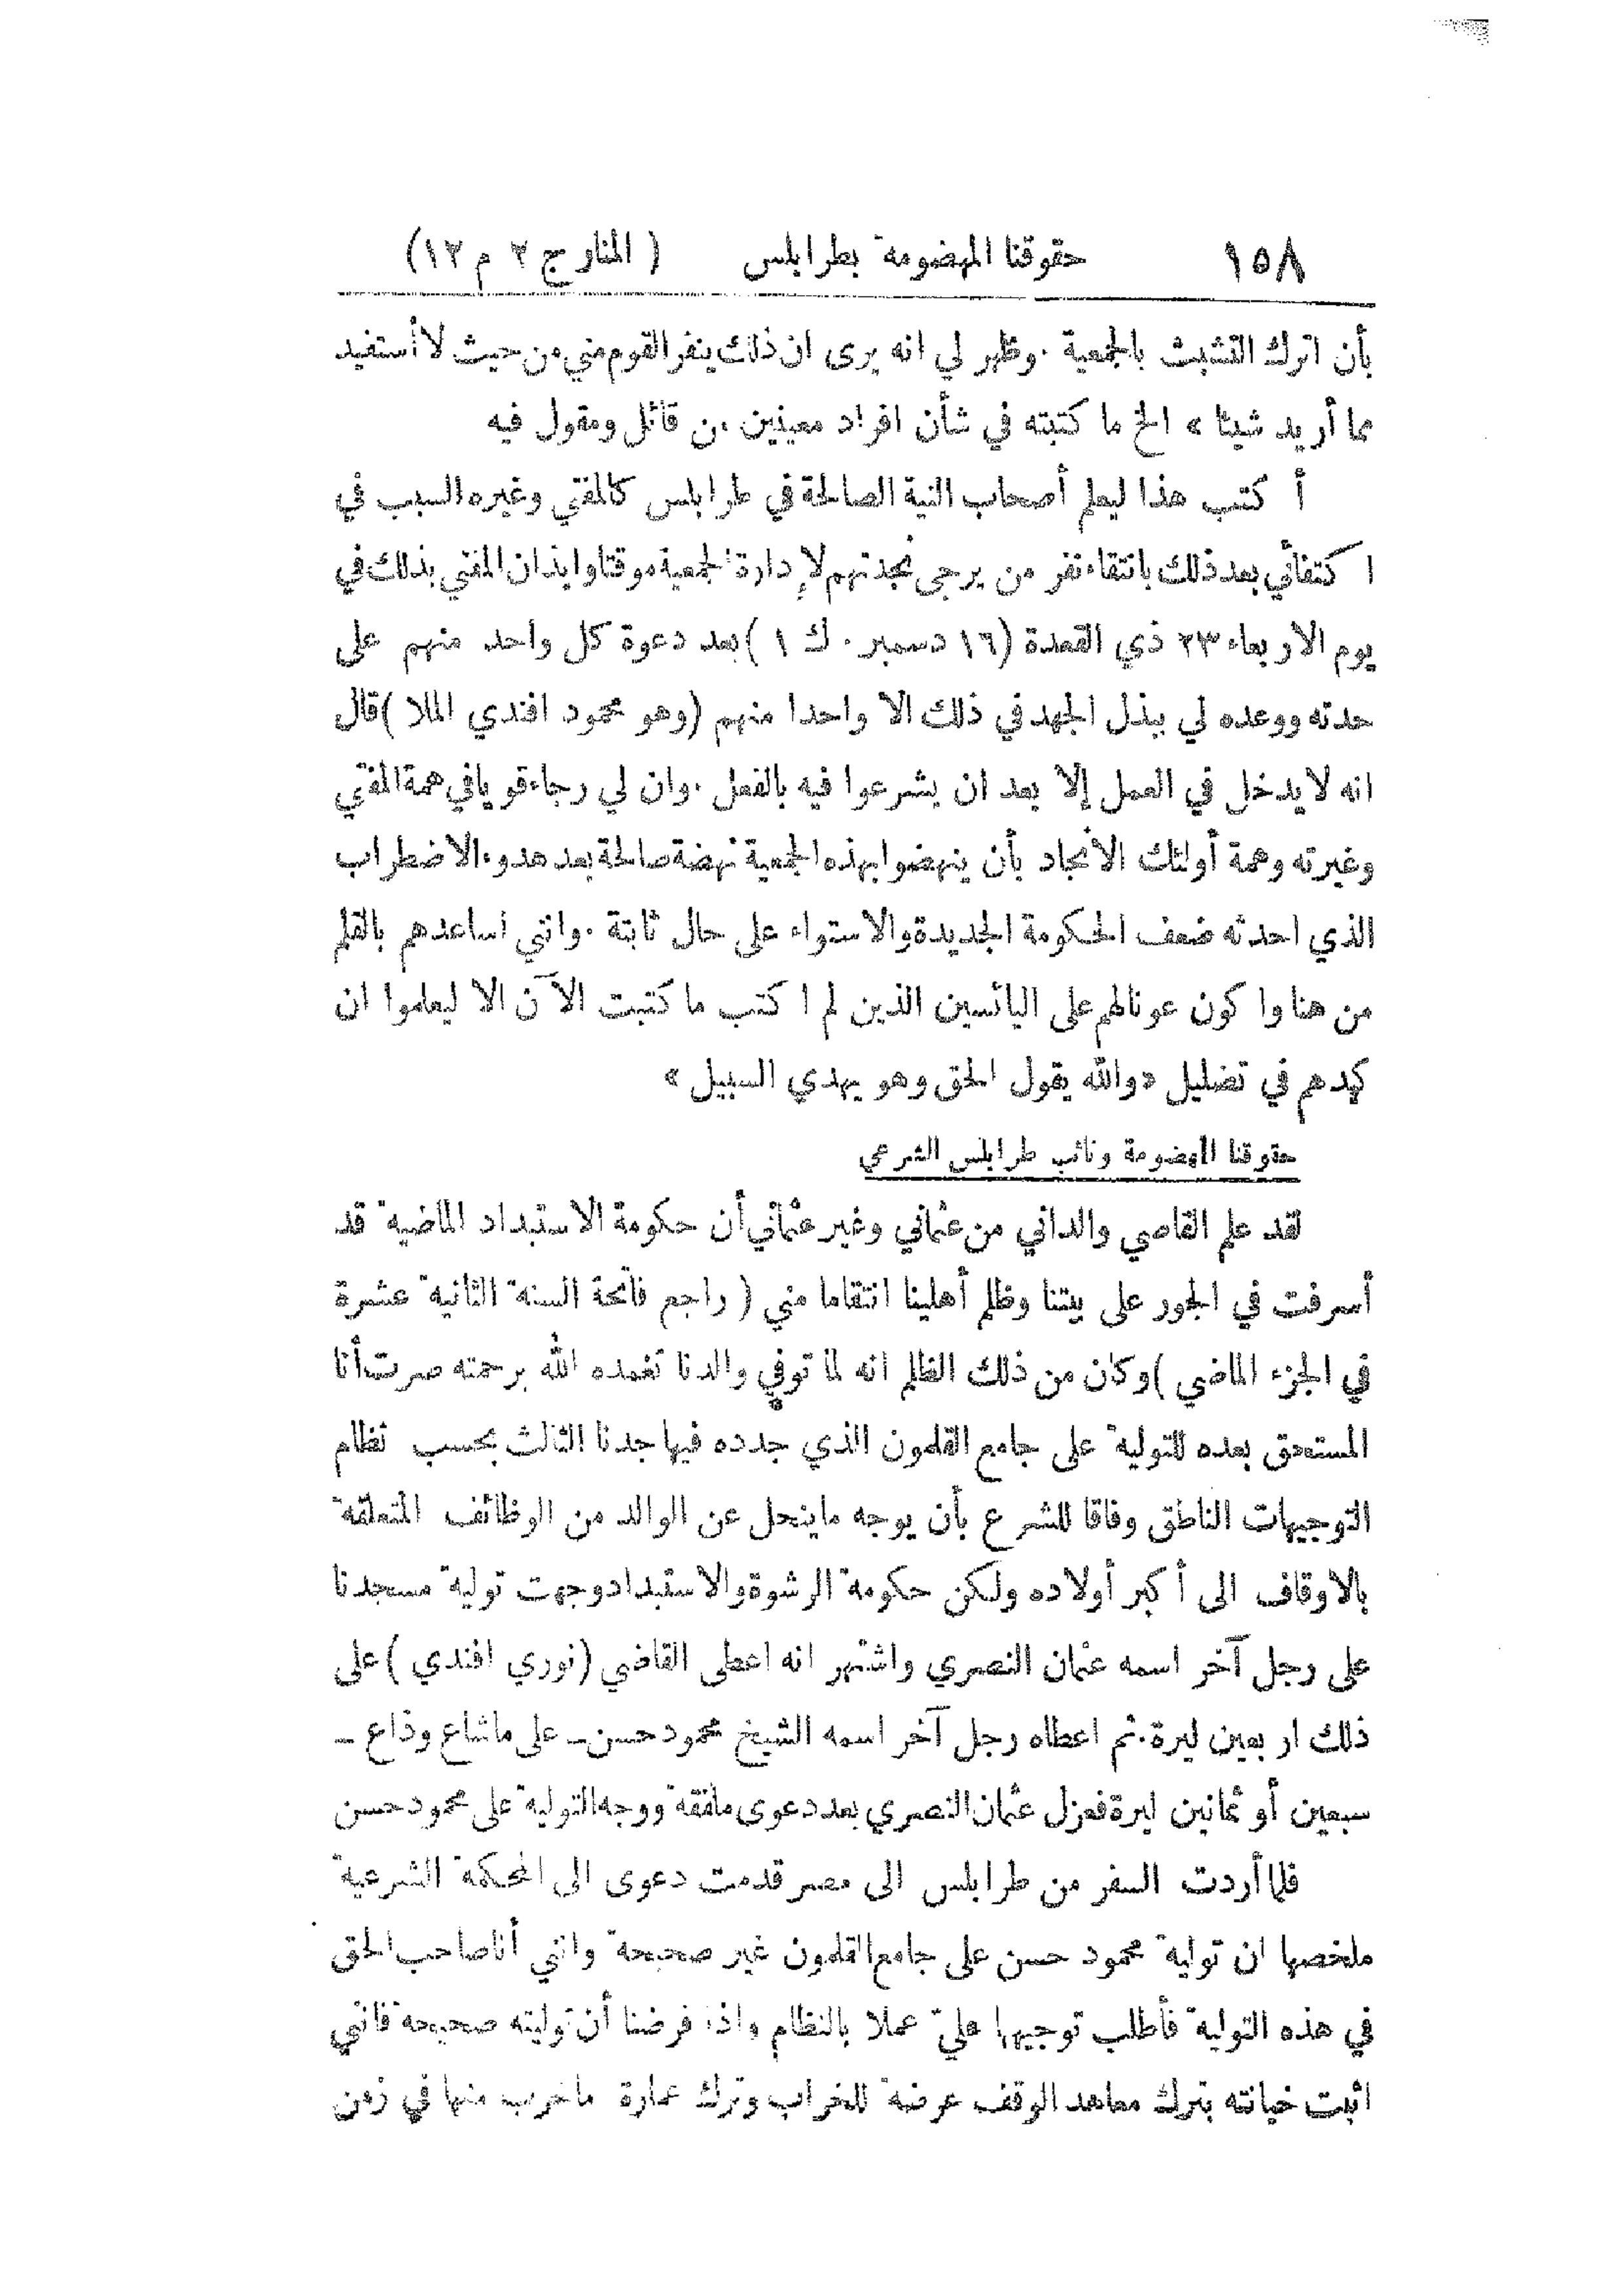 ١٥٨ حقوقنا المهضومة بطرابلس ( المنار ج ٢ م ١٢)
بأن اترك التشبث بالجمعية . وظهر لي انه يرى ان ذلك ينفر القوم مني من حيث لا أستفيد
مما أريد شيئا » الخ ما كتبته في شأن افراد معينين من قائل ومقول فيه
أكتب هذا ليعلم أصحاب النية الصالحة في طرابلس كالمفتي وغيره السبب في
اكتفائي بعد ذلك بانتقاء نفر من يرجى نجدتهم لإدارة الجمعية موقتا وايذان المفتي بذلك في
يوم الاربعاء ٢٣ ذي القعدة (١٦ دسمبر . ك ١ ) بعد دعوة كل واحد منهم على
حدته ووعده لي ببذل الجهد في ذلك الا واحدا منهم (وهو محمود افندي الملا ) قال
انه لا يدخل في العمل إلا بعد ان يشرعوا فيه بالفعل . وان لي رجاء قويا في همة المفتي
وغيرته وهمة أولئك الأنجاد بأن ينهضوا بهذه الجمعية نهضة صالحة بعد هدوء الاضطراب
الذي احدثه ضعف الحكومة الجديدة والاستواء على حال ثابتة . وانني اساعدهم بالقلم
من هنا واكون عونا لهم على اليائسين الذين لم اكتب ما كتبت الآن الا ليعلموا ان
كيدهم في تضليل «والله يقول الحق وهو يهدي السبيل »
حقوقنا المهضومة ونائب طرابلس الشرعي
لقد علم القاصي والداني من عثماني وغير عثماني أن حكومة الاستبداد الماضية قد
أسرفت في الجور على بيتنا وظلم أهلينا انتقاما مني ( راجع فاتحة السنة الثانية عشرة
في الجزء الماضي ) وكان من ذلك الظلم انه لما توفي والدنا تغمده الله برحمته صرت أنا
المستحق بعده للتولية على جامع القلمون الذي جدده فيها جدنا الثالث بحسب نظام
التوجيهات الناطق وفاقا للشرع بأن يوجه ما ينحل عن الوالد من الوظائف المتعلقة
بالاوقاف الى أكبر أولاده ولكن حكومة الرشوة والاستبداد وجهت تولية مسجدنا
على رجل آخر اسمه عثمان النصري واشتهر انه اعطى القاضي (نوري افندي ) على
ذلك اربعين ليرة . ثم اعطاه رجل آخر اسمه الشيخ محمود حسن ـ على ما شاع وذاع ـ
سبعين أو ثمانين ليرة فعزل عثمان النصري بعد دعوى ملفقة ووجه التولية على محمود حسن
فلما أردت السفر من طرابلس الى مصر قدمت دعوى الى المحكمة الشرعية
ملخصها ان تولية محمود حسن على جامع القلمون غير صحيحة وانني أنا صاحب الحق
في هذه التولية فأطلب توجيهها عليّ عملا بالنظام واذا فرضنا أن توليته صحيحة فانني
اثبت خيانته بترك معاهد الوقف عرضة للخراب وترك عمارة ما خرب منها في زمن